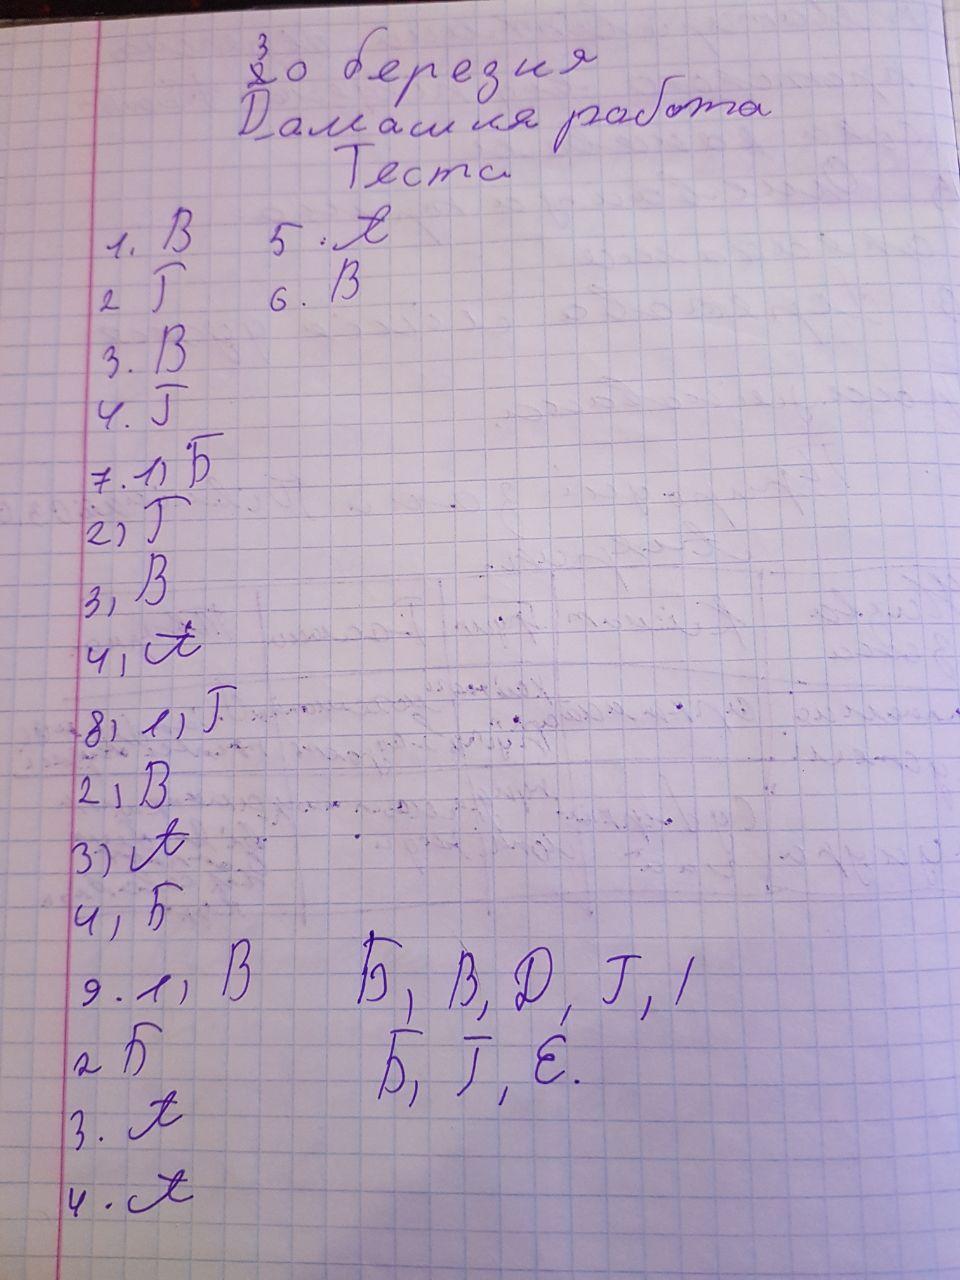 30 березня
Дамашня работа
Теста
1. В 5. А
2 Г 6. В
3. В
4. Г
7. 1) Б
2) Г
3, В
4, А
8) 1, Г
2, В
3) А
4, Б
9. 1, В Б, В, Д, Г, /
2 Б Б, Г, Е.
3. А
4. А